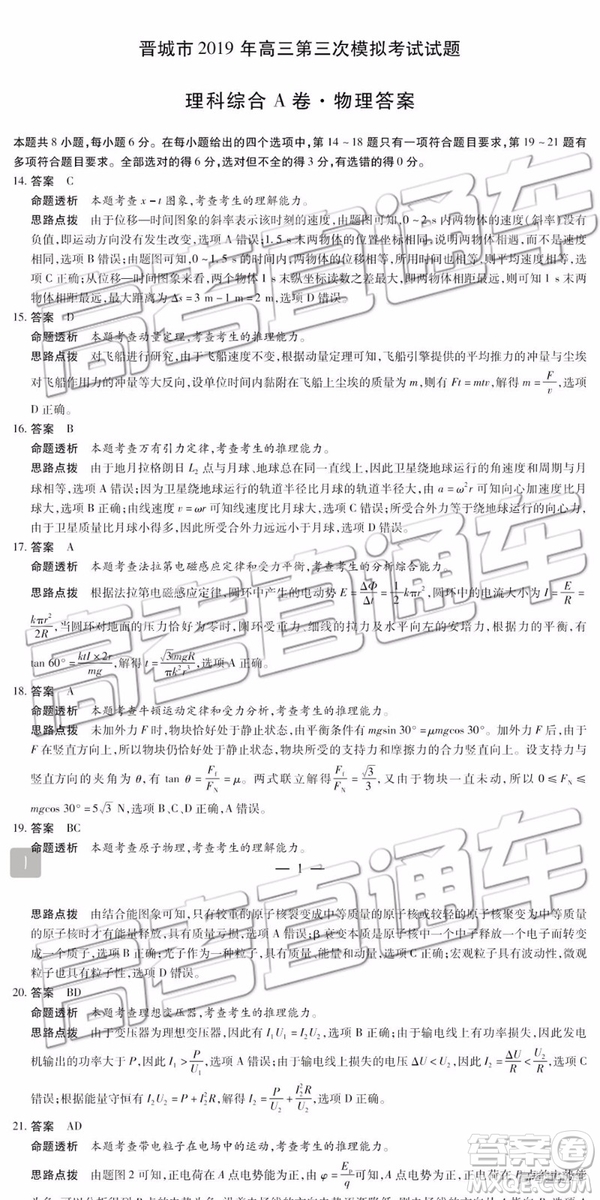 晋城市 2019 年高三第三次模拟考试试题
理科综合 A 卷·物理答案
本题共 8 小题,每小题 6 分。在每小题给出的四个选项中,第 14~18 题只有一项符合题目要求,第 19~21 题有
多项符合题目要求。全部选对的得 6 分,选对但不全的得 3 分,有选错的得 0 分。
14. 答案 C
命题透析 本题考查 x-t 图象,考查考生的理解能力。
思路点拨 由于位移—时间图象的斜率表示该时刻的速度,由题图可知,0~2 s 内两物体的速度(斜率)没有
负值,即运动方向没有发生改变,选项 A 错误;1.5 s 末两物体的位置坐标相同,说明两物体相遇,而不是速度
相同,选项 B 错误;由题图可知,0~1.5 s 的时间内,两物体的位移相等,所以此段时间内,平均速度相等,选
项 C 正确;从位移—时间图象来看,两个物体 1 s 末纵坐标读数之差最大,即两物体相距最远,则可知 1 s 末
两物体相距最远,最大距离为 Δs = 3 m - 1 m = 2 m,选项 D 错误。
15. 答案 D
命题透析 本题考查动量定理,考查考生的推理能力。
思路点拨 对飞船进行研究,由于飞船速度不变,根据动量定理可知,飞船引擎提供的平均推力的冲量与尘埃
对飞船作用力的冲量等大反向,设单位时间内黏附在飞船上尘埃的质量为 m,则有 Ft = mtv,解得 m = F/v,选项
D 正确。
16. 答案 B
命题透析 本题考查万有引力定律,考查考生的推理能力。
思路点拨 由于地月拉格朗日 L₂ 点与月球、地球总是在同一直线上,因此卫星绕地球运行的角速度和周期与
月球相等,选项 A 错误;因为卫星绕地球运行的轨道半径比月球的轨道半径大,由 a = ω²r 可知向心加速度比
月球大,选项 B 正确;由线速度 v = ωr 可知线速度比月球大,选项 C 错误;所受合外力等于绕地球运行的向心力,
由于卫星质量比月球小得多,因此所受合外力远远小于月球,选项 D 错误。
17. 答案 A
命题透析 本题考查法拉第电磁感应定律和受力平衡,考查考生的分析综合能力。
思路点拨 根据法拉第电磁感应定律,圆环中产生的电动势 E = ΔΦ/Δt = 1/2 kπr²,圆环中的电流大小为 I = E/R =
kπr²/2R,当圆环对地面的压力恰好为零时,圆环受重力、细线的拉力及水平向左的安培力,根据力的平衡,有
tan 60° = ktI×2r/mg,解得 t = √3mgR/πk²r³,选项 A 正确。
18. 答案 A
命题透析 本题考查牛顿运动定律和受力分析,考查考生的推理能力。
思路点拨 未加外力 F 时,物块恰好处于静止状态,由平衡条件有 mgsin 30° = μmgcos 30°。加外力 F 后,由于
F 在竖直方向上,所以物块仍恰好处于静止状态,物块所受的支持力和摩擦力的合力竖直向上。设支持力与
竖直方向的夹角为 θ,有 tan θ = Ff/FN = μ。两式联立解得 Ff/FN = √3/3,又由于物块一直未动,所以 0 ≤ FN ≤
mgcos 30° = 5√3 N,选项 B、C、D 正确,A 错误。
19. 答案 BC
命题透析 本题考查原子物理,考查考生的理解能力。
— 1 —
思路点拨 由结合能图象可知,只有较重的原子核裂变成中等质量的原子核或较轻的原子核聚变为中等质量
的原子核时才有能量释放,具有质量亏损,选项 A 错误;β 衰变中原子核内部一个中子释放一个电子而转变
成一个质子,选项 B 正确;光子作为一种粒子,具有质量、能量和动量,选项 C 正确;宏观粒子也具有波动性,微观
粒子也具有粒子性,选项 D 错误。
20. 答案 BD
命题透析 本题考查理想变压器,考查考生的推理能力。
思路点拨 由于变压器为理想变压器,因此有 I₁U₁ = I₂U₂,选项 B 正确;由于输电线上有功率损失,因此发电
机输出的功率大于 P,因此 I₁ > P/U₁,选项 A 错误;由于输电线上损失的电压 ΔU < U₂,因此 I₂ = ΔU/R < U₂/R,选项 C
错误;根据能量守恒有 I₂U₂ = P + I₂²R,解得 I₂ = P/U₂ + I₂²R/U₂,选项 D 正确。
21. 答案 AD
命题透析 本题考查带电粒子在电场中的运动,考查考生的推理能力。
思路点拨 由题图 2 可知,正电荷在 A 点电势能为正,由 φ = Ep/q 可知,正电荷在 A 点电势
高考直通车
答案卷